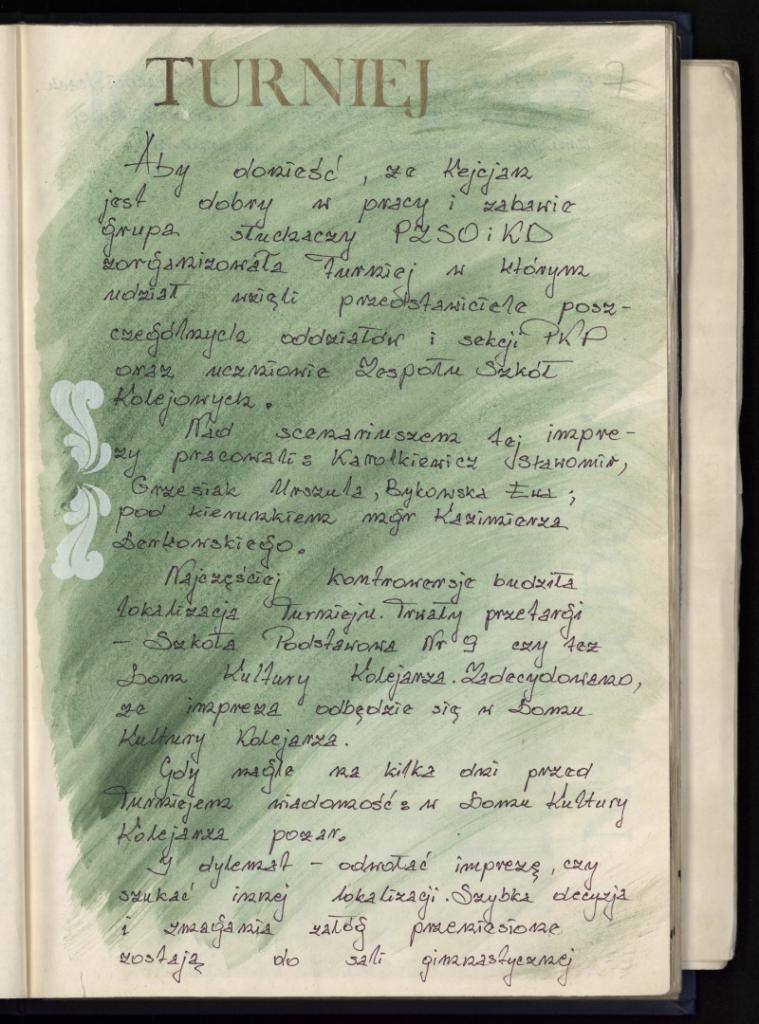 TURNIEJ
7
Aby donieść, że Kejcjan
jest dobry w pracy i zabawie
grupa słuchaczy PZSOiKD
zorganizowała turniej w którym
udział wzięli przedstawiciele posz-
czególnych oddziałów i sekcji PKP
oraz uczniowie Zespołu Szkół
Kolejowych.
Nad scenariuszem tej impre-
zy pracowali: Karolkiewicz Sławomir,
Grzesiak Urszula, Bykowska Ewa;
pod kierunkiem mgr Kazimierza
Derkowskiego.
Najczęściej kontrowersje budziła
lokalizacja Turnieju. Trwały przetargi
– Szkoła Podstawowa Nr 9 czy też
Dom Kultury Kolejarza. Zadecydowano,
że impreza odbędzie się w Domu
Kultury Kolejarza.
Gdy nagle na kilka dni przed
Turniejem wiadomość: w Domu Kultury
Kolejarza pożar.
I dylemat – odwołać imprezę, czy
szukać innej lokalizacji. Szybka decyzja
i zmagania załóg przeniesione
zostają do sali gimnastycznej